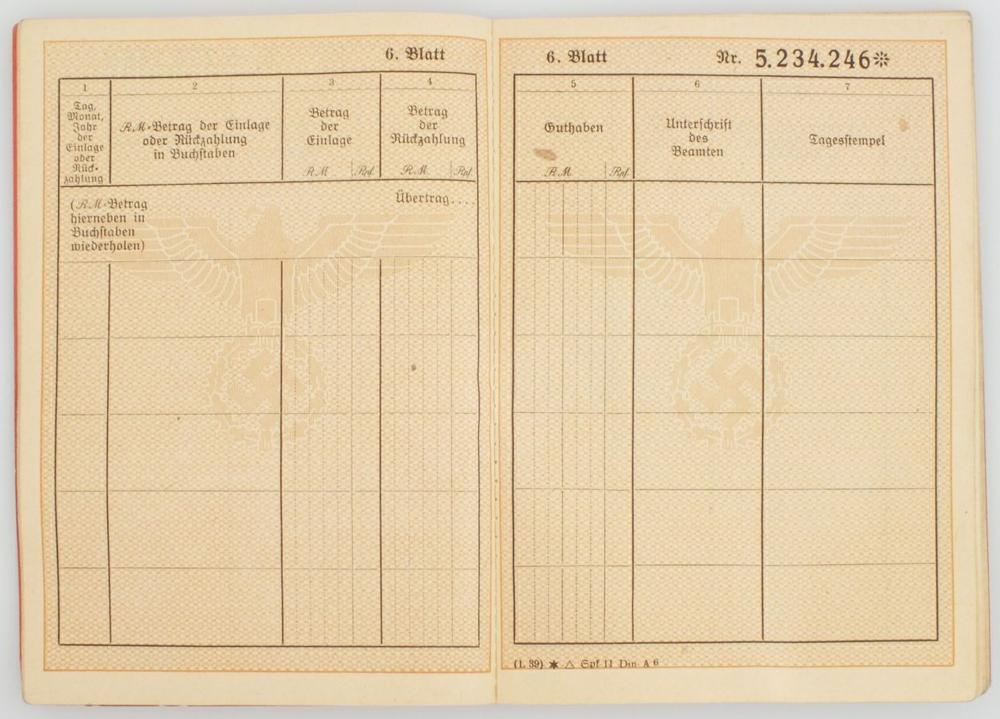 6. Blatt
1
2
3
4
Tag,
Monat,
Jahr
der
Einlage
oder
Rück-
zahlung
RM-Betrag der Einlage
oder Rückzahlung
in Buchstaben
Betrag
der
Einlage
RM
Rpf
Betrag
der
Rückzahlung
RM
Rpf
(RM-Betrag
hierneben in
Buchstaben
wiederholen)
Übertrag....
6. Blatt
Nr. 5.234.246
5
6
7
Guthaben
RM
Rpf
Unterschrift
des
Beamten
Tagesstempel
(1. 39) ★ △ Spf 11 Din A 6